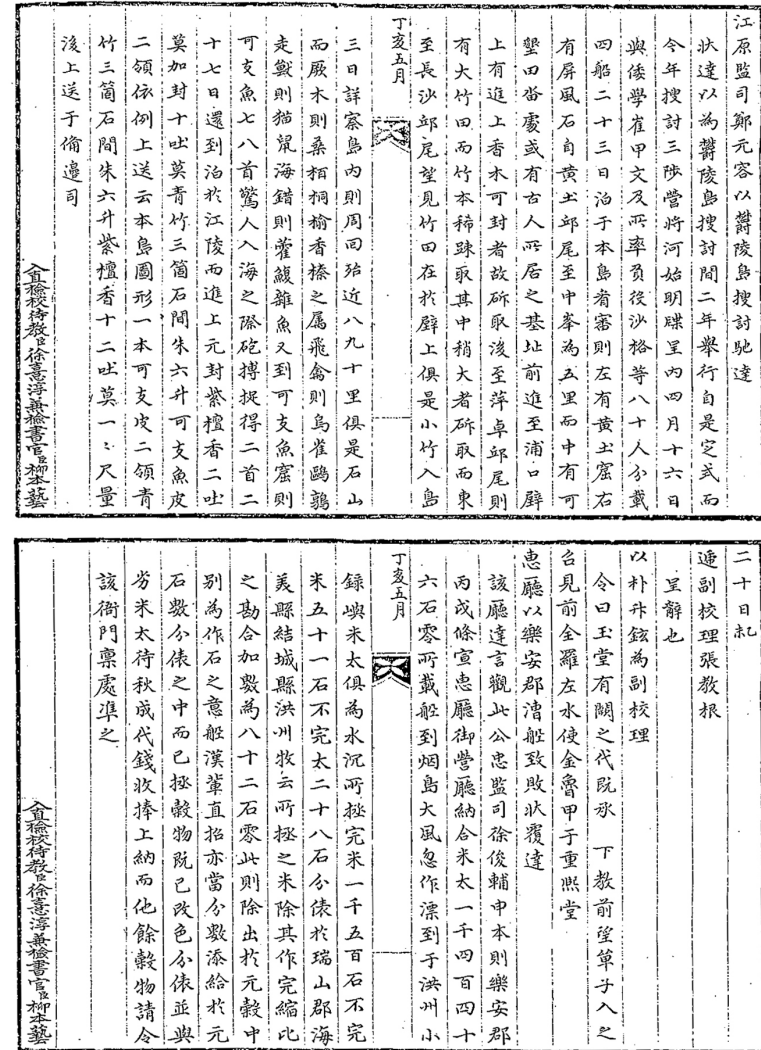 江原監司鄭元容以鬱陵島搜討馳達
狀達以為鬱陵島搜討間二年舉行自是定式而
今年搜討三陟營將河始明牒呈內四月十六日
與倭學崔甲文及所率員役沙格等八十人分載
四船二十三日泊于本島看審則左有黃土窟右
有屏風石自黃土邱尾至中峯為五里而中有可
墾田畓處或有古人所居之基址前進至浦口壁
上有進上香木可封者故斫取後至萍卓邱尾則
有大竹田而竹本稀踈取其中稍大者斫取而東
至長沙邱尾望見竹田在於壁上俱是小竹入島
丁亥五月
三日詳察島內則周回殆近八九十里俱是石山
而厥木則桑栢桐榆香榛之屬飛禽則烏雀鷗鶉
走獸則猫鼠海錯則藿鰒雜魚又到可支魚窟則
可支魚七八首驚人入海之際砲搏捉得二首二
十七日還到泊於江陵而進上元封紫檀香二吐
莫加封十吐莫青竹三箇石間朱六升可支魚皮
二領依例上送云本島圖形一本可支皮二領青
竹三箇石間朱六升紫檀香十二吐莫一〻尺量
後上送于備邊司
入直檢校待教臣徐憙淳兼檢書官臣柳本藝
二十日虬
遞副校理張敎根
呈辭也
以朴升鉉為副校理
令曰玉堂有闕之代旣承 下敎前望單子入之
召見前全羅左水使金魯甲于重熙堂
惠廳以樂安郡漕船致敗狀覆達
該廳達言觀此公忠監司徐俊輔申本則樂安郡
丙戌條宣惠廳御營廳納合米太一千四百四十
六石零所載船到烟島大風忽作漂到于洪州小
丁亥五月
錄嶼米太俱為水沉所拯完米一千五百石不完
米五十一石不完太二十八石分俵於瑞山郡海
美縣結城縣洪州牧云所拯之米除其作完縮比
之勘合加數為八十二石零此則除出於元穀中
別為作石之意船漢輩直招亦當分數添給於元
石數分俵之中而已拯穀物旣已改色分俵並與
劣米太待秋成代錢收捧上納而他餘穀物請令
該衙門稟處準之
入直檢校待教臣徐憙淳兼檢書官臣柳本藝